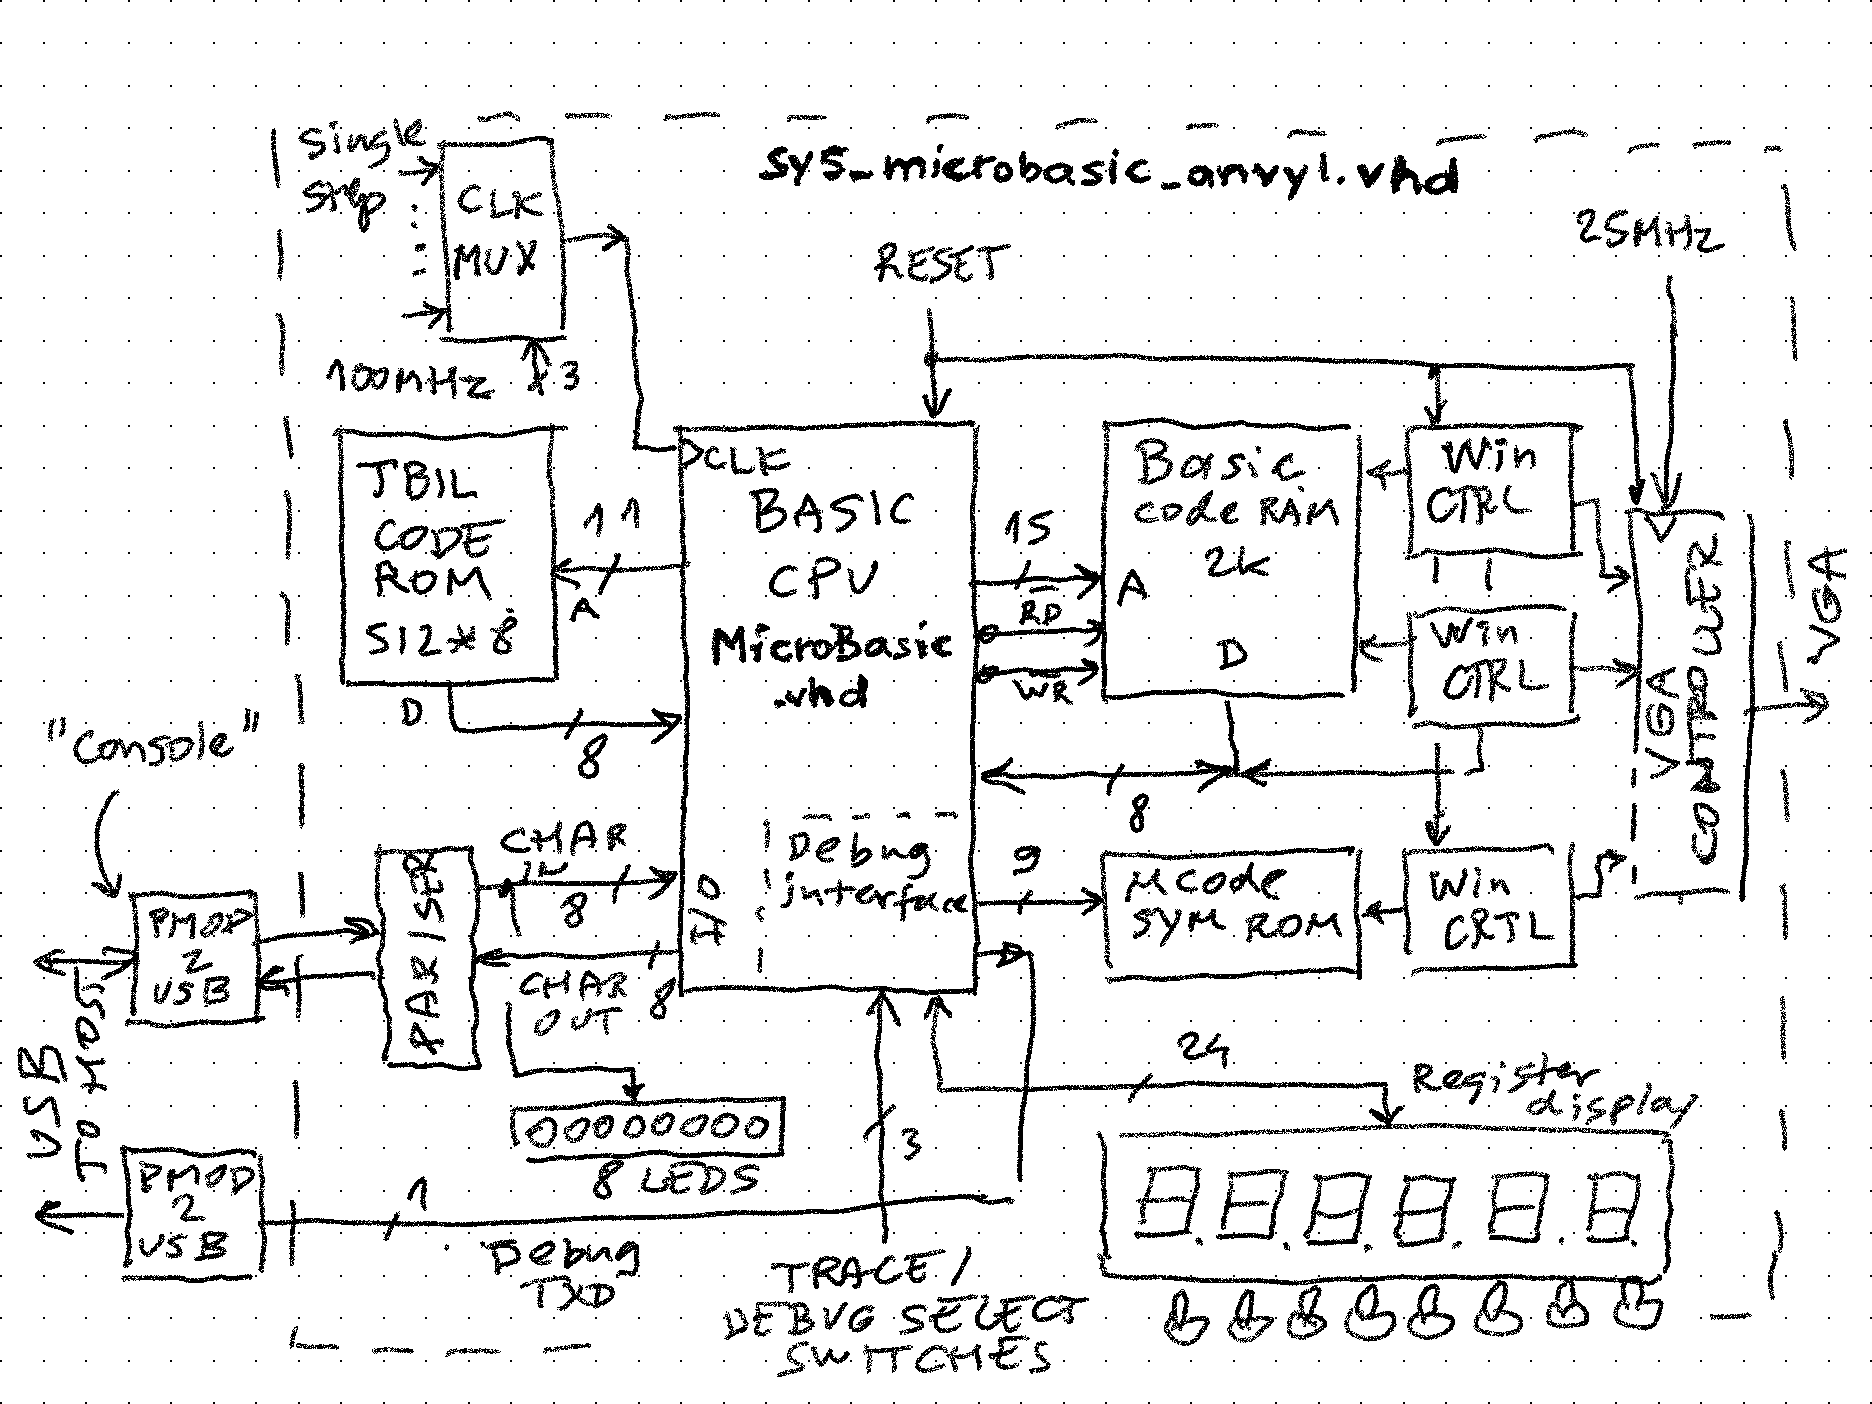 Single
step
CLK
MUX
100MHz
3
sys_microbasic_anvyl.vhd
RESET
25MHz
TBIL
CODE
ROM
512*8
11
A
D
8
CLK
BASIC
CPU
MicroBasic
.vhd
15
RD
WR
Basic
code RAM
2k
A
D
8
Win
CTRL
Win
CTRL
VGA
CONTROLLER
VGA
"Console"
PMOD
2
USB
USB
TO HOST
PAR/SER
CHAR
IN
8
CHAR
OUT
8
I/O
Debug
interface
9
μcode
SYM ROM
Win
CRTL
24
Register
display
8 LEDS
3
PMOD
2
USB
1
Debug
TXD
TRACE/
DEBUG SELECT
SWITCHES
8.8.8.8.8.8.